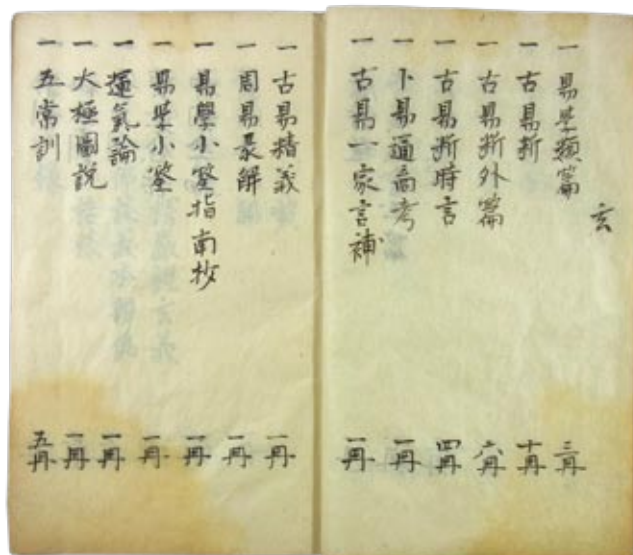 玄
一 易学類篇 三冊
一 古易断 十冊
一 古易断外篇 六冊
一 古易断時言 四冊
一 卜易通商考 一冊
一 古易一家言補 一冊
一 古易精義 一冊
一 周易 解 一冊
一 易學小筌指南抄 一冊
一 易学小筌 一冊
一 運氣論 一冊
一 大極圖説 一冊
一 五常訓 五冊